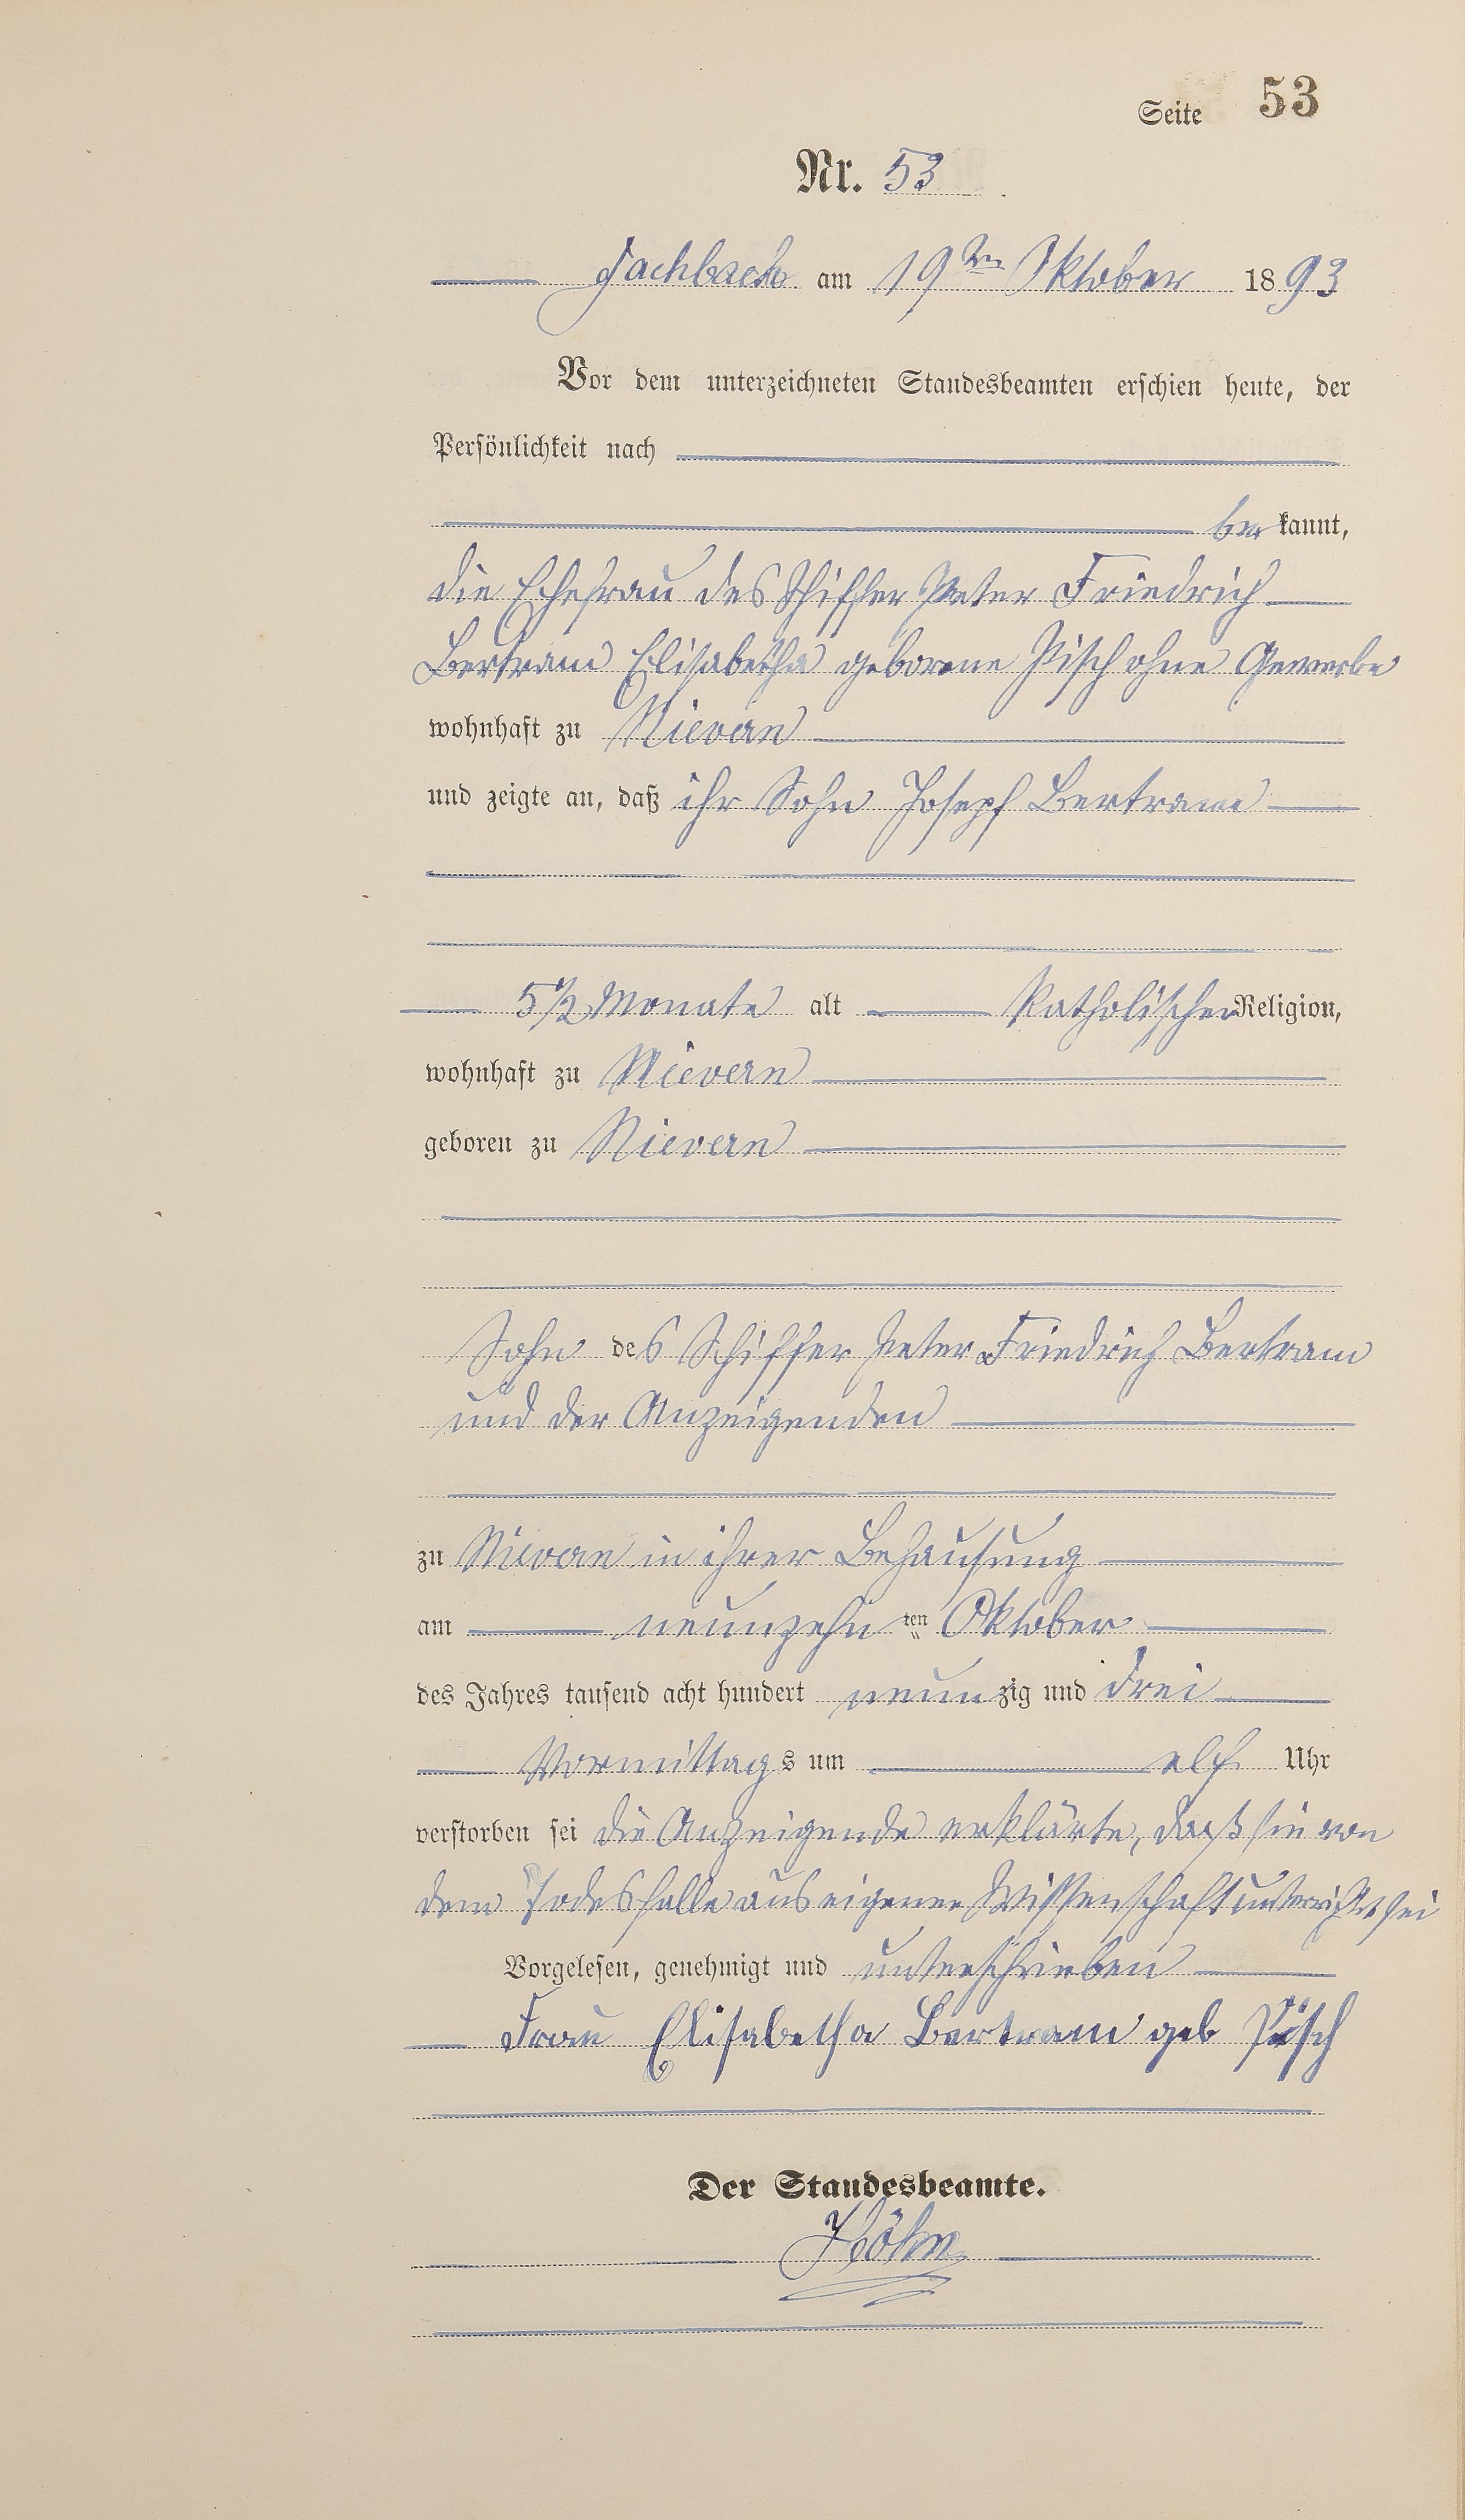 Seite 53
Nr. 53
Fachbach am 19ten Oktober 1893
Vor dem unterzeichneten Standesbeamten erschien heute, der
Persönlichkeit nach
be kannt,
die Ehefrau des Schiffer Peter Friedrich
Bertram Elisabetha geborene Pisch ohne Gewerbe
wohnhaft zu Nievern
und zeigte an, daß ihr Sohn Joseph Bertram
5½ Monate alt Katholischer Religion,
wohnhaft zu Nievern
geboren zu Nievern
Sohn des Schiffer Peter Friedrich Bertram
und der Anzeigenden
zu Nievern in ihrer Behausung
am neunzehn ten Oktober
des Jahres tausend acht hundert neunzig und drei
Vormittags um elf Uhr
verstorben sei die Anzeigende erklärte, daß sie von
dem Todesfalle aus eigener Wissenschaft unterrichtet sei
Vorgelesen, genehmigt und unterschrieben
Frau Elisabetha Bertram geb Pisch
Der Standesbeamte.
Höhn